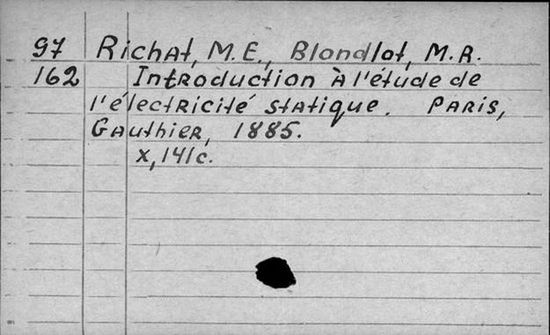 97 Richat, M.E., Blondlot, M.R.
162 Introduction à l'étude de
l'électricité statique. Paris,
Gauthier, 1885.
x, 141c.